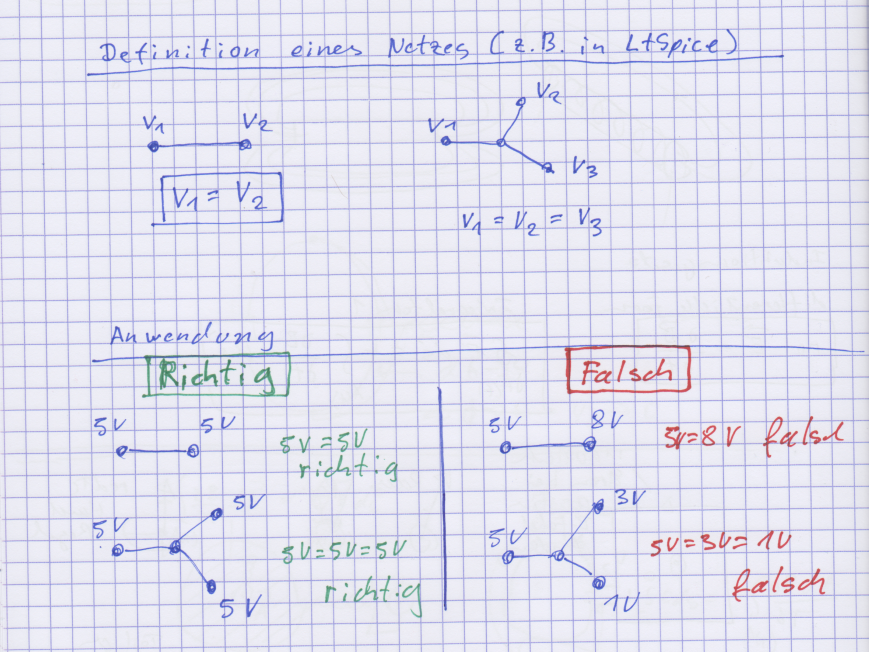 Definition eines Netzes (z.B. in LtSpice)
V1 V2
V1 = V2
V1 V2 V3
V1 = V2 = V3
Anwendung
Richtig
5V 5V
5V = 5V
richtig
5V 5V 5V
5V = 5V = 5V
richtig
Falsch
5V 8V
5V = 8V falsch
5V 3V 1V
5V = 3V = 1V
falsch